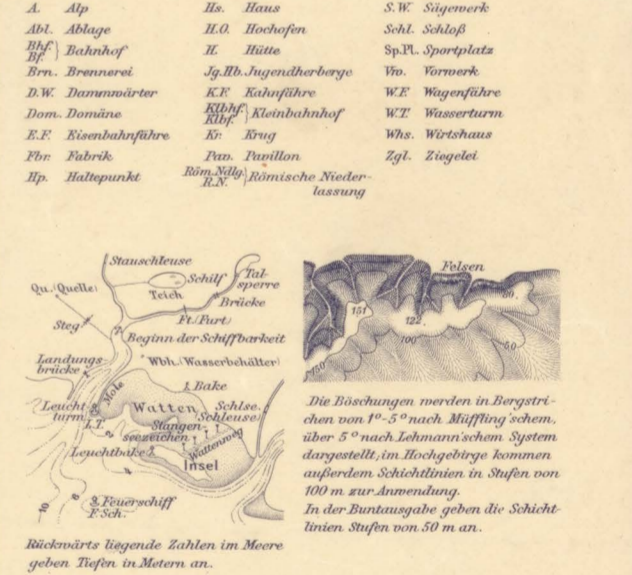 A. Alp
Abl. Ablage
Bhf. Bf. } Bahnhof
Brn. Brennerei
D.W. Dammwärter
Dom. Domäne
E.F. Eisenbahnfähre
Fbr. Fabrik
Hp. Haltepunkt
Hs. Haus
H.O. Hochofen
H. Hütte
Jg.Hb. Jugendherberge
K.F. Kahnfähre
Klbhf. Klbf. } Kleinbahnhof
Kr. Krug
Pav. Pavillon
Röm.Ndlg. R.N. } Römische Nieder-
lassung
S.W. Sägewerk
Schl. Schloß
Sp.Pl. Sportplatz
Vw. Vorwerk
W.F. Wagenfähre
W.T. Wasserturm
Whs. Wirtshaus
Zgl. Ziegelei
Stauschleuse
Schilf
Tal-
sperre
Teich
Qu.(Quelle)
Brücke
Steg
Ft.(Furt)
Beginn der Schiffbarkeit
Landungs-
brücke
Wbh.(Wasserbehälter)
Mole
Bake
Watten
Schlse.
(Schleuse)
Leucht-
turm
L.T.
Stangen-
seezeichen
Wattenweg
Leuchtbake
Insel
2
4
6
10
Feuerschiff
F.Sch.
Rückwärts liegende Zahlen im Meere
geben Tiefen in Metern an.
Felsen
151
122
100
80
50
150
Die Böschungen werden in Bergstri-
chen von 1°-5° nach Müffling'schem,
über 5° nach Lehmann'schem System
dargestellt, im Hochgebirge kommen
außerdem Schichtlinien in Stufen von
100 m zur Anwendung.
In der Buntausgabe geben die Schicht-
linien Stufen von 50 m an.